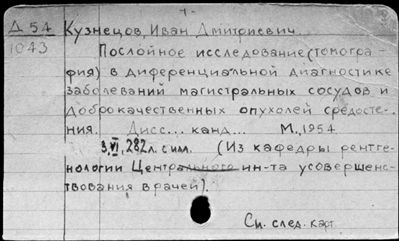 Д 54 Кузнецов, Иван Дмитриевич
1043
Послойное исследование (томогра-
фия) в диференциальной диагностике
заболеваний магистральных сосудов и
доброкачественных опухолей средосте-
ния. Дисс... канд... М., 1954
3, VI, 282 л. с илл. (Из кафедры рентге-
нологии Центрального ин-та усовершенс-
твования врачей).
См. след. карт.